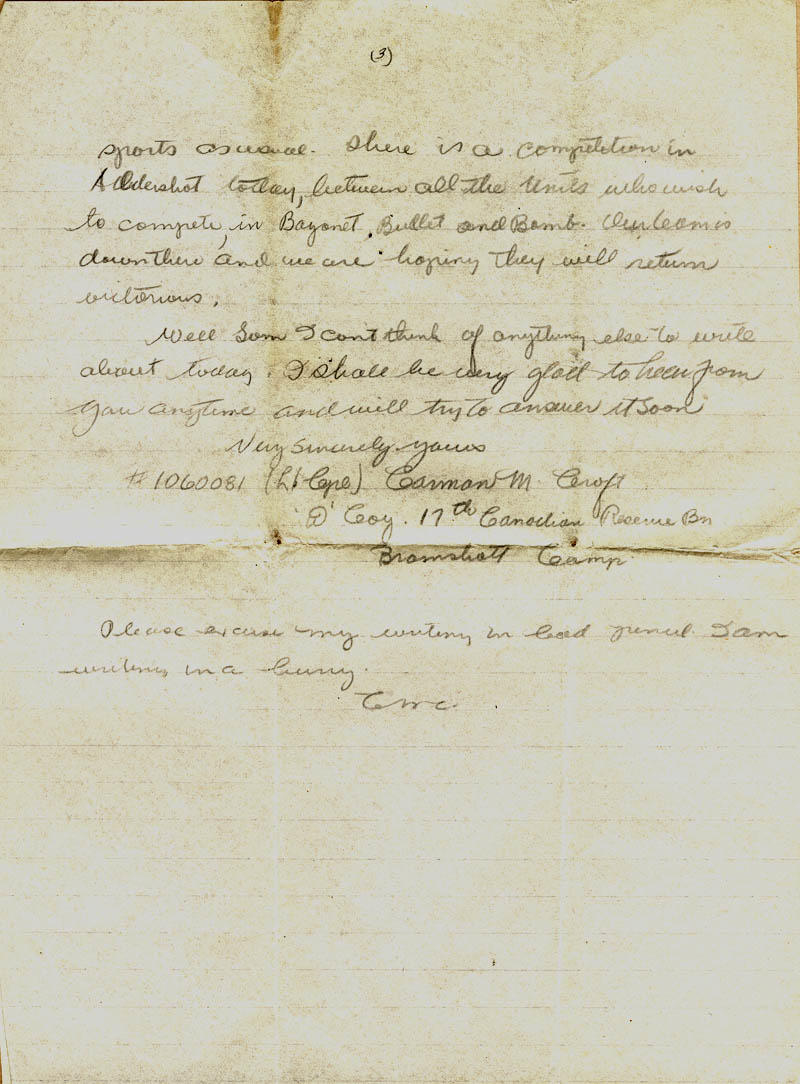 (3)
sports as usual. There is a competition in
Aldershot today, between all the Units who wish
to compete, in Bayonet, Bullet and Bomb. Our team is
down there and we are hoping they will return
victorious.
Well Sam I cant think of anything else to write
about today. I shall be very glad to hear from
you anytime and will try to answer it soon
Very sincerely yours
# 1060081 (L/Cpl) Carman M. Croft
'D' Coy. 17th Canadian Reserve Bn
Bramshott Camp.
Please excuse my writing in lead pencil. I am
writing in a hurry.
CMC.